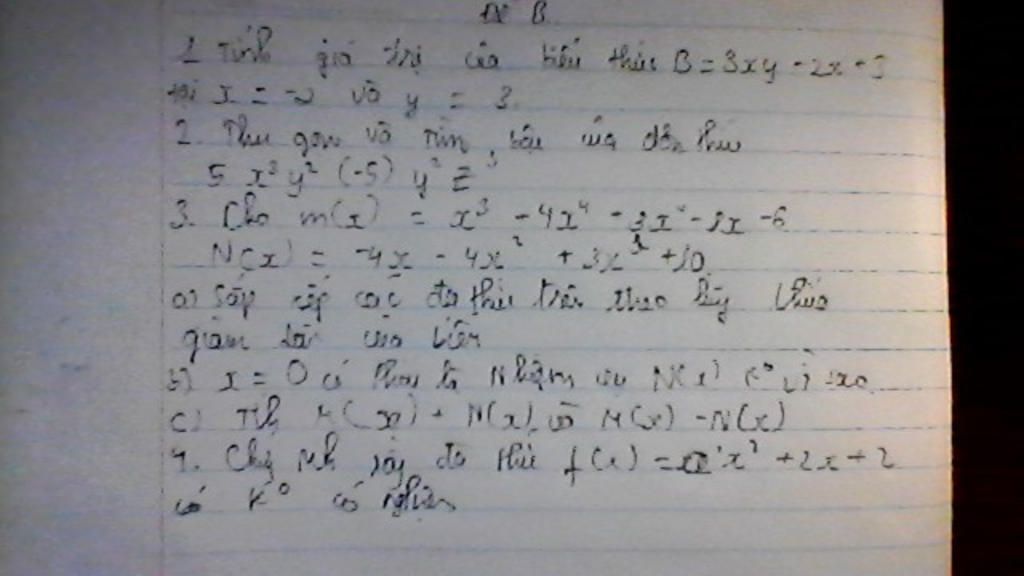 Đề B.
1 Tính giá trị của biểu thức B = 3xy - 2x + 3
tại x = -2 và y = 3.
2. Thu gọn và tìm bậc của đơn thức
5 x³ y² (-5) y² z³
3. Cho M(x) = x³ - 4x⁴ - 3x - 6
N(x) = -4x - 4x² + 3x + 10
a) Sắp xếp các đa thức trên theo lũy thừa
giảm dần của biến
b) x = 0 có phải là Nhiệm của N(x) K⁰ vì sao
c) Tính M(x) + N(x) và M(x) - N(x)
4. đa thức f(x) = x² + 2x + 2
K⁰ có nghiệm